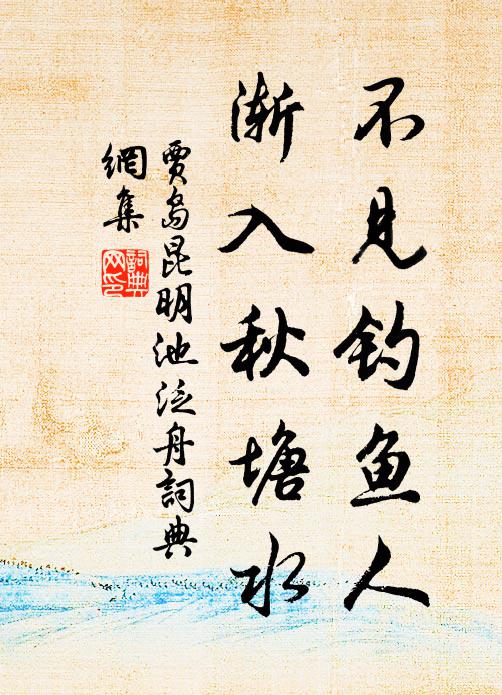 不见钓鱼人
渐入秋塘水
贾岛昆明池泛舟詞典
網集
詞典
网印